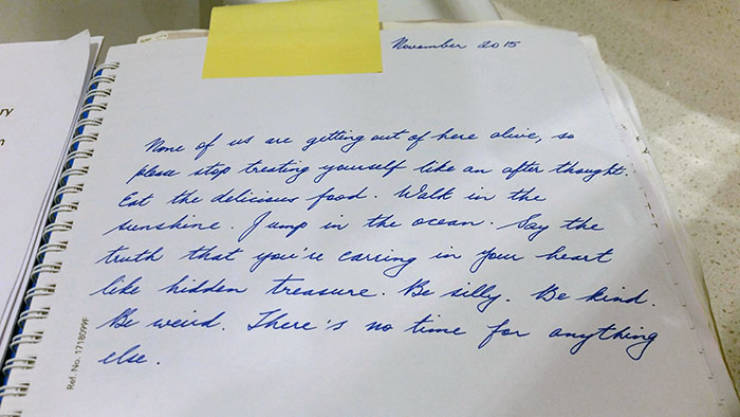 November 2015
None of us are getting out of here alive, so
please stop treating yourself like an after thought.
Eat the delicious food. Walk in the
sunshine. Jump in the ocean. Say the
truth that you're carring in your heart
like hidden treasure. Be silly. Be kind.
Be weird. There's no time for anything
else.
Ref. No. 1718099F
ry
n